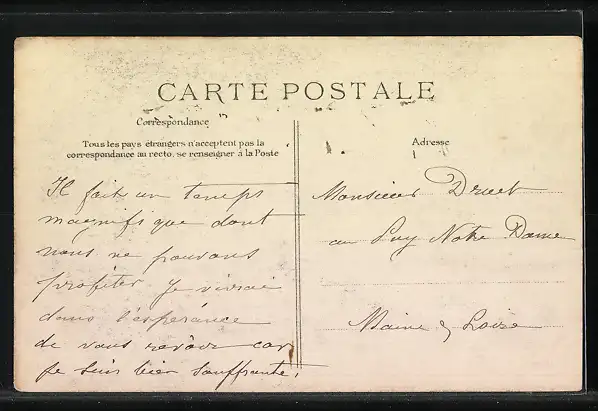 CARTE POSTALE
Correspondance
Tous les pays étrangers n'acceptent pas la
correspondance au recto, se renseigner à la Poste
Il fait un temps
magnifique dont
nous ne pouvons
profiter Je vivrai
dans l'espérance
de vous revoir car
je suis bien souffrante.
Adresse
Monsieur Druet
au Puy Notre Dame
Maine & Loire